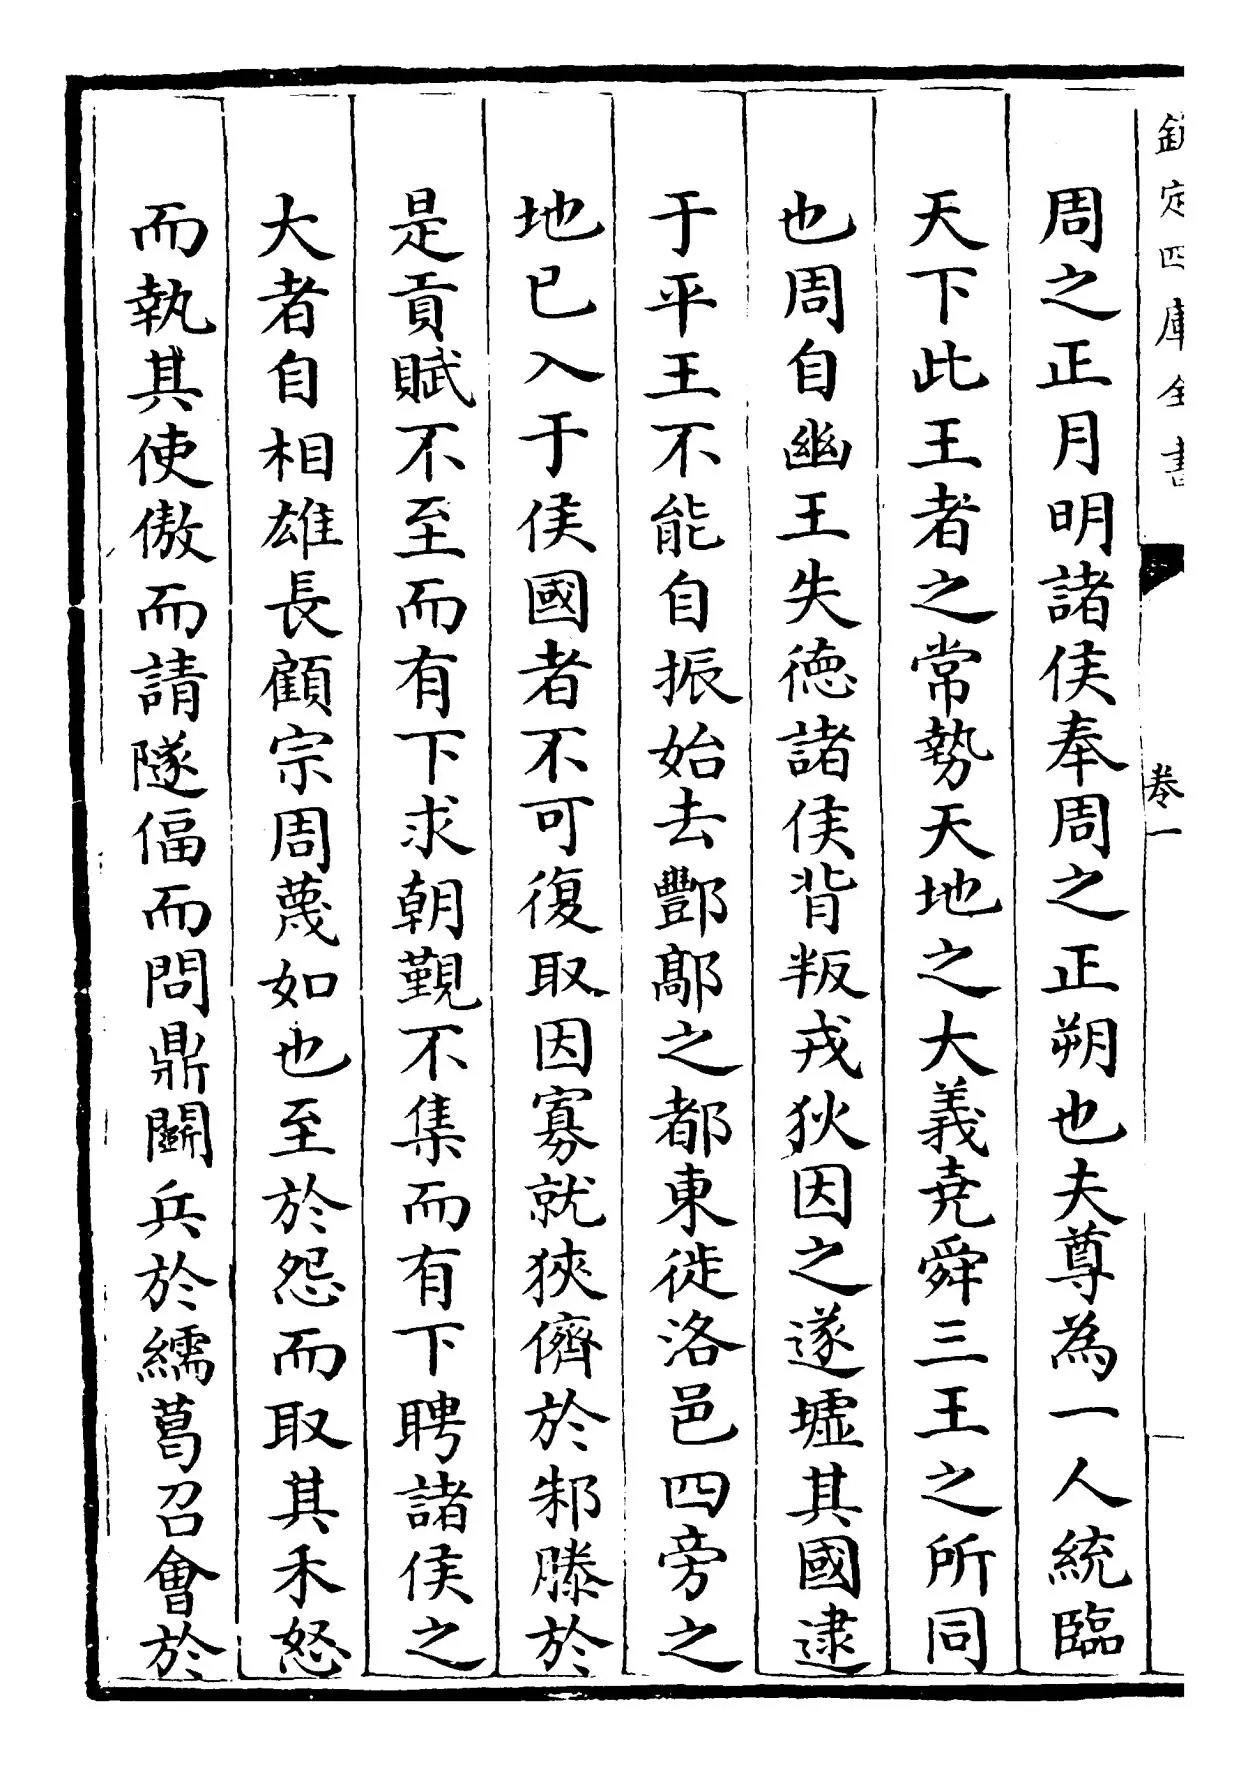 欽定四庫全書
卷一
周之正月明諸侯奉周之正朔也夫尊為一人統臨
天下此王者之常勢天地之大義堯舜三王之所同
也周自幽王失德諸侯背叛戎狄因之遂墟其國逮
于平王不能自振始去酆鄗之都東徙洛邑四旁之
地已入于侯國者不可復取因寡就狹儕於邾滕於
是貢賦不至而有下求朝覲不集而有下聘諸侯之
大者自相雄長顧宗周蔑如也至於怨而取其禾怒
而執其使傲而請隧偪而問鼎鬭兵於繻葛召會於